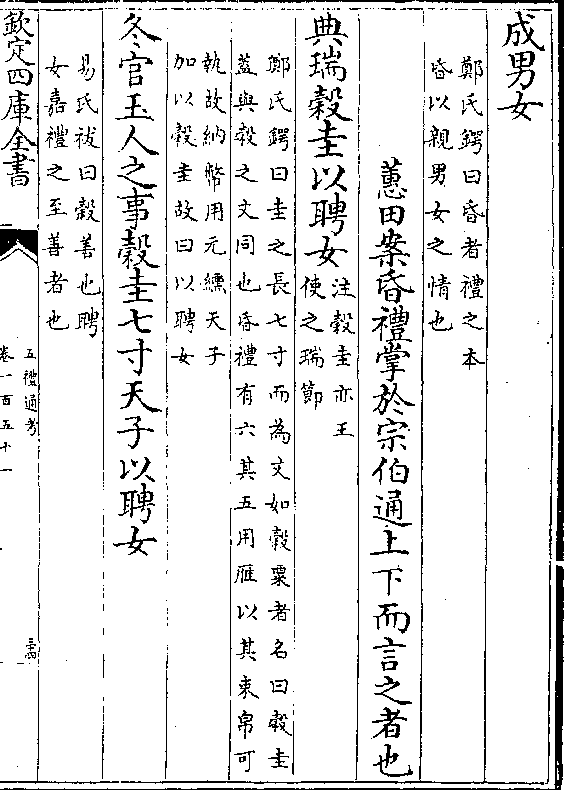 成男女
鄭氏鍔曰昏者禮之本
昏以親男女之情也
蕙田案昏禮掌於宗伯通上下而言之者也
典瑞穀圭以聘女
注穀圭亦王
使之瑞節
鄭氏鍔曰圭之長七寸而為文如穀粟者名曰穀圭
蓋與穀之文同也昏禮有六其五用雁以其束帛可
執故納幣用元纁天子
加以穀圭故曰以聘女
冬官玉人之事穀圭七寸天子以聘女
易氏祓曰穀善也聘
女嘉禮之至善者也
欽定四庫全書
五禮通考
卷一百五十一
三四